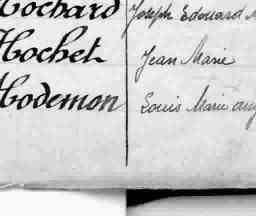 Hochard Joseph Edouard
Hochet Jean Marie
Hodemon Louis Marie